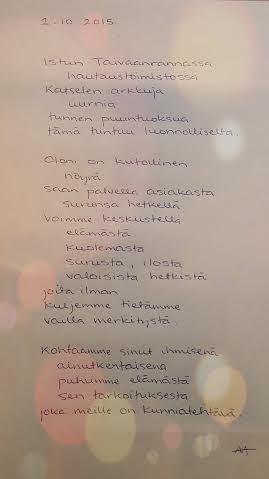 2.10 2015
Istun Taivaanrannassa
hautaustoimistossa
Katselen arkkuja
uurnia
tunnen puuntuoksua
tämä tuntuu luonnolliselta.
Oloni on kiitollinen
nöyrä
saan palvella asiakasta
surunsa hetkellä
Voimme keskustella
elämästä
kuolemasta
surusta, ilosta
valoisista hetkistä
joita ilman
kuljemme tietämme
vailla merkitystä.
Kohtaamme sinut ihmisenä
ainutkertaisena
puhumme elämästä
sen tarkoituksesta
joka meille on kunniatehtävä.